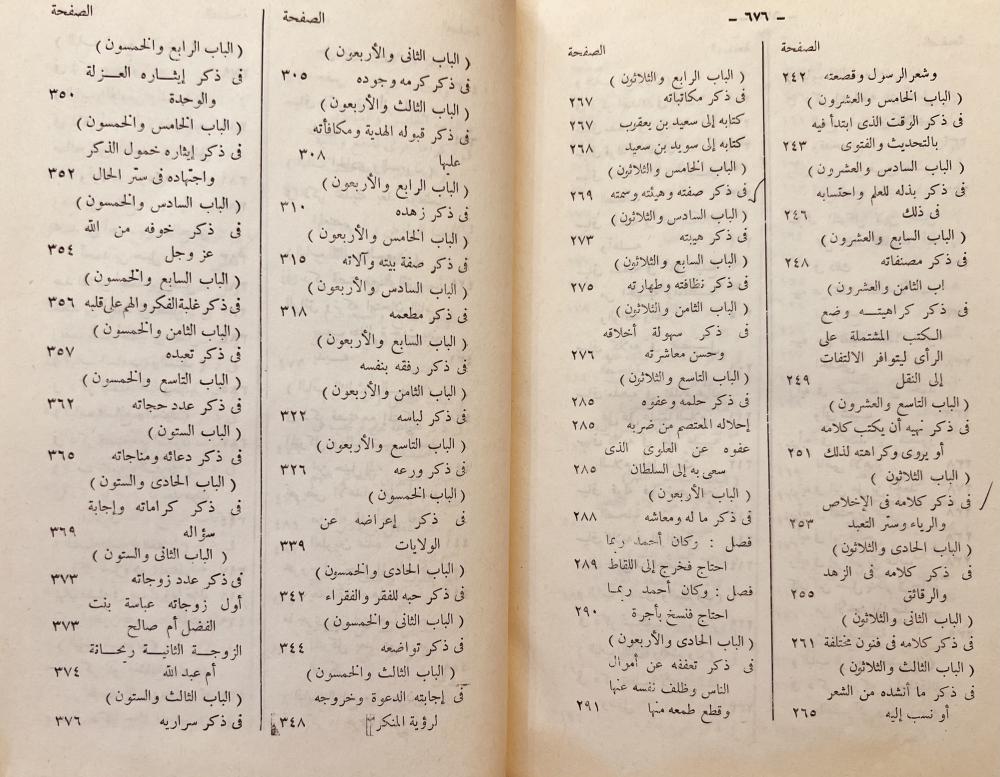 - ٦٧٦ -
الصفحة
وشعر الرسول وقصعته ٢٤٢
( الباب الخامس والعشرون )
فى ذكر الوقت الذى ابتدأ فيه
بالتحديث والفتوى ٢٤٣
( الباب السادس والعشرون )
فى ذكر بذله للعلم واحتسابه
فى ذلك ٢٤٦
( الباب السابع والعشرون )
فى ذكر مصنفاته ٢٤٨
اب الثامن والعشرون )
فى ذكر كراهيته وضع
الكتب المشتملة على
الرأى ليتوافر الالتفات
إلى النقل ٢٤٩
( الباب التاسع والعشرون )
فى ذكر نهيه أن يكتب كلامه
أو يروى وكراهته لذلك ٢٥١
( الباب الثلاثون )
فى ذكر كلامه فى الإخلاص
والرياء وستر التعبد ٢٥٣
( الباب الحادى والثلاثون )
فى ذكر كلامه فى الزهد
والرقائق ٢٥٥
( الباب الثانى والثلاثون )
فى ذكر كلامه فى فنون مختلفة ٢٦١
( الباب الثالث والثلاثون )
فى ذكر ما أنشده من الشعر
أو نسب إليه ٢٦٥
الصفحة
( الباب الرابع والثلاثون )
فى ذكر مكاتباته ٢٦٧
كتابه إلى سعيد بن يعقوب ٢٦٧
كتابه إلى سويد بن سعيد ٢٦٨
( الباب الخامس والثلاثون )
فى ذكر صفته وهيئته وسمته ٢٦٩
( الباب السادس والثلاثون )
فى ذكر هيبته ٢٧٣
( الباب السابع والثلاثون )
فى ذكر نظافته وطهارته ٢٧٥
( الباب الثامن والثلاثون )
فى ذكر سهولة أخلاقه
وحسن معاشرته ٢٧٦
( الباب التاسع والثلاثون )
فى ذكر حلمه وعفوه ٢٨٥
إحلاله المعتصم من ضربه ٢٨٥
عفوه عن العلوى الذى
سعى به إلى السلطان ٢٨٥
( الباب الأربعون )
فى ذكر ماله ومعاشه ٢٨٨
فصل : وكان أحمد ربما
احتاج فخرج إلى اللقاط ٢٨٩
فصل : وكان أحمد ربما
احتاج فنسخ بأجرة ٢٩٠
( الباب الحادى والأربعون )
فى ذكر تعففه عن أموال
الناس وظلف نفسه عنها
وقطع طمعه منها ٢٩١
الصفحة
( الباب الثانى والأربعون )
فى ذكر كرمه وجوده ٣٠٥
( الباب الثالث والأربعون )
فى ذكر قبوله الهدية ومكافأته
عليها ٣٠٨
( الباب الرابع والأربعون )
فى ذكر زهده ٣١٠
( الباب الخامس والأربعون )
فى ذكر صفة بيته وآلاته ٣١٥
( الباب السادس والأربعون )
فى ذكر مطعمه ٣١٨
( الباب السابع والأربعون )
فى ذكر رفقه بنفسه
( الباب الثامن والأربعون )
فى ذكر لباسه ٣٢٢
( الباب التاسع والأربعون )
فى ذكر ورعه ٣٢٦
( الباب الخمسون )
فى ذكر إعراضه عن
الولايات ٣٣٩
( الباب الحادى والخمسون )
فى ذكر حبه للفقر والفقراء ٣٤٢
( الباب الثانى والخمسون )
فى ذكر تواضعه ٣٤٤
( الباب الثالث والخمسون )
فى إجابته الدعوة وخروجه
لرؤية المنكر ٣٤٨
الصفحة
( الباب الرابع والخمسون )
فى ذكر إيثاره العزلة
والوحدة ٣٥٠
( الباب الخامس والخمسون )
فى ذكر إيثاره خمول الذكر
واجتهاده فى ستر الحال ٣٥٢
( الباب السادس والخمسون )
فى ذكر خوفه من الله
عز وجل ٣٥٤
( الباب السابع والخمسون )
فى ذكر غلبة الفكر والهم على قلبه ٣٥٦
( الباب الثامن والخمسون )
فى ذكر تعبده ٣٥٧
( الباب التاسع والخمسون )
فى ذكر عدد حجاته ٣٦٢
( الباب الستون )
فى ذكر دعائه ومناجاته ٣٦٥
( الباب الحادى والستون )
فى ذكر كراماته وإجابة
سؤاله ٣٦٩
( الباب الثانى والستون )
فى ذكر عدد زوجاته ٣٧٣
أول زوجاته عباسة بنت
الفضل أم صالح ٣٧٣
الزوجة الثانية ريحانة
أم عبد الله ٣٧٤
( الباب الثالث والستون )
فى ذكر سراريه ٣٧٦